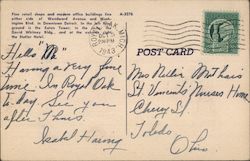 Fine retail shops and modern office buildings line
either side of Woodward Avenue and Wash-
ington Blvd. in Downtown Detroit. In the
ground is the Eaton Tower, in the
David Whitney Bldg. and at the extreme
the Statler Hotel.
A-3276
ROYAL OAK MICH.
PM
1943
POST CARD
Hello "Me"
Having a very fine
time. In Royal Oak
to day. See you
after Xmas
Isabel Haring
Mrs Neider Mathais
St. Vincents Nurses Home
Cherry St
Toledo
Ohio